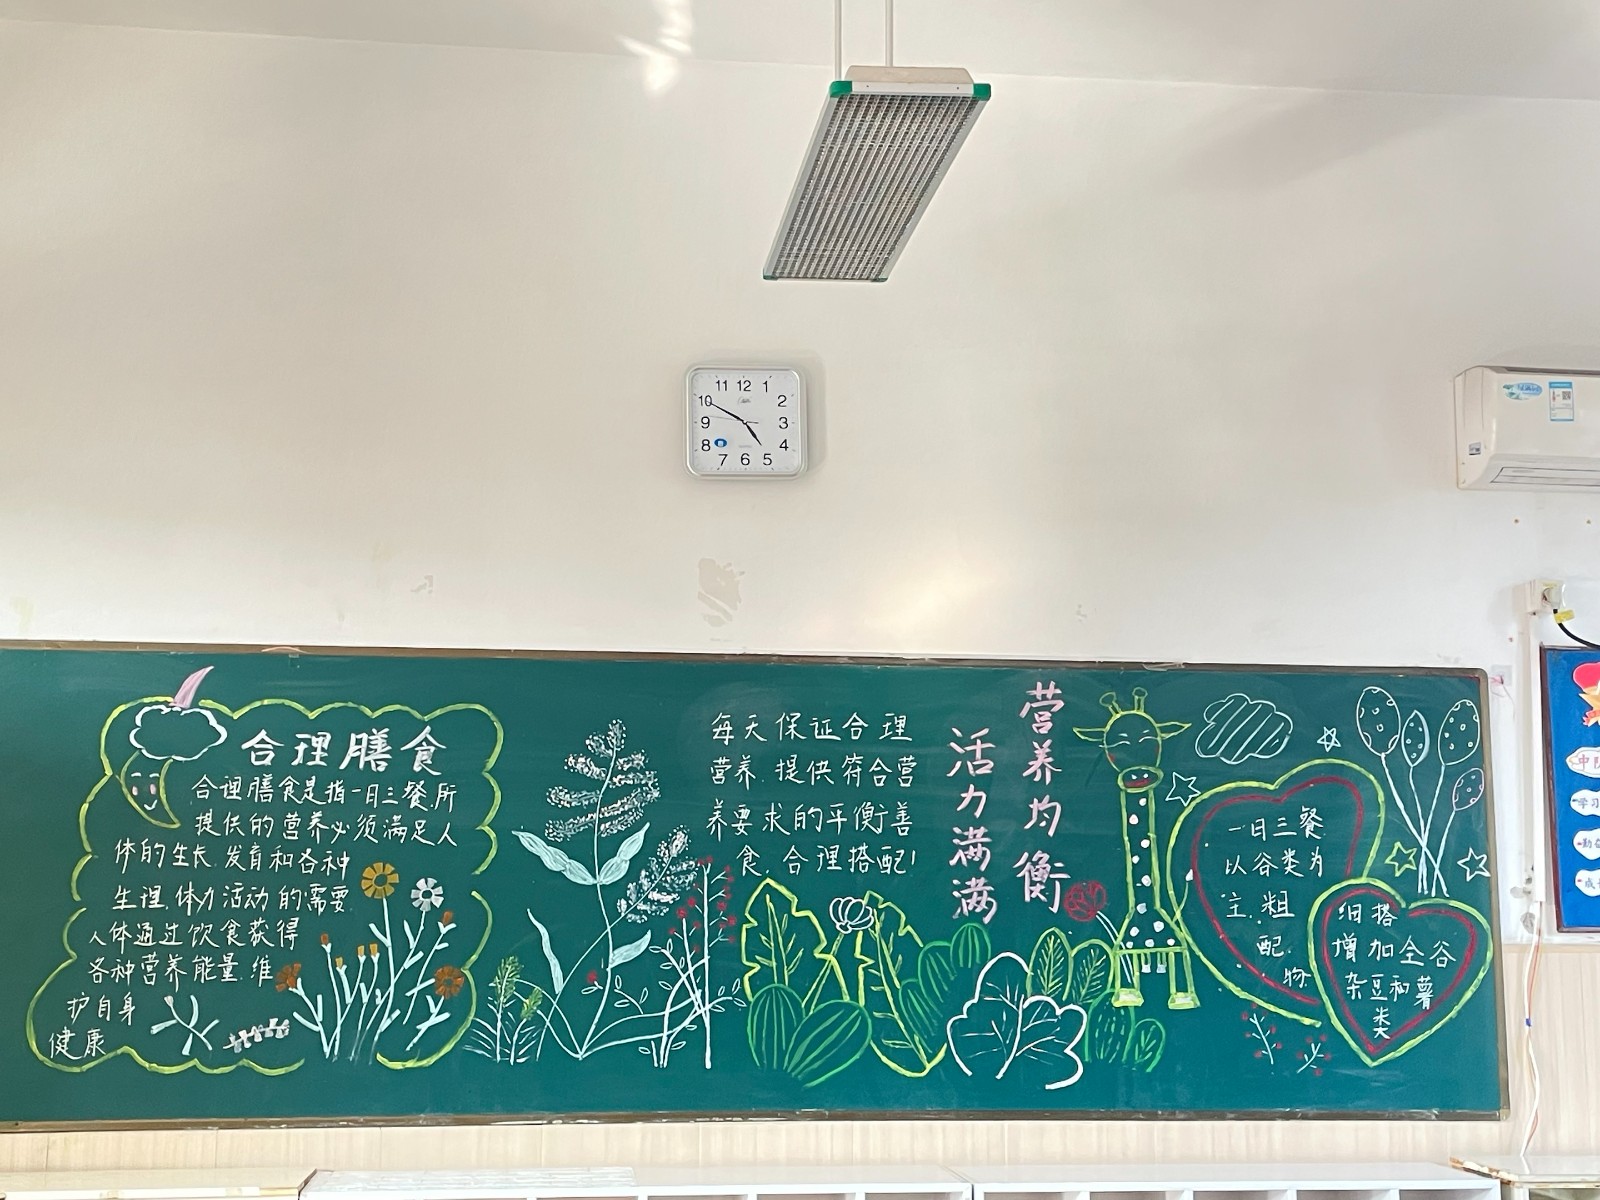 11 12 1
10 2
9 3
8 4
7 6 5
合理膳食
合理膳食是指一日三餐所
提供的营养必须满足人
体的生长.发育和各种
生理.体力活动的需要
人体通过饮食获得
各种营养能量.维
护自身
健康
每天保证合理
营养.提供符合营
养要求的平衡善
食.合理搭配!
营养均衡
活力满满
一日三餐
以谷类为
主.粗
配.
物
细搭
增加全谷
杂豆和薯
类
中队
学习
勤
成长